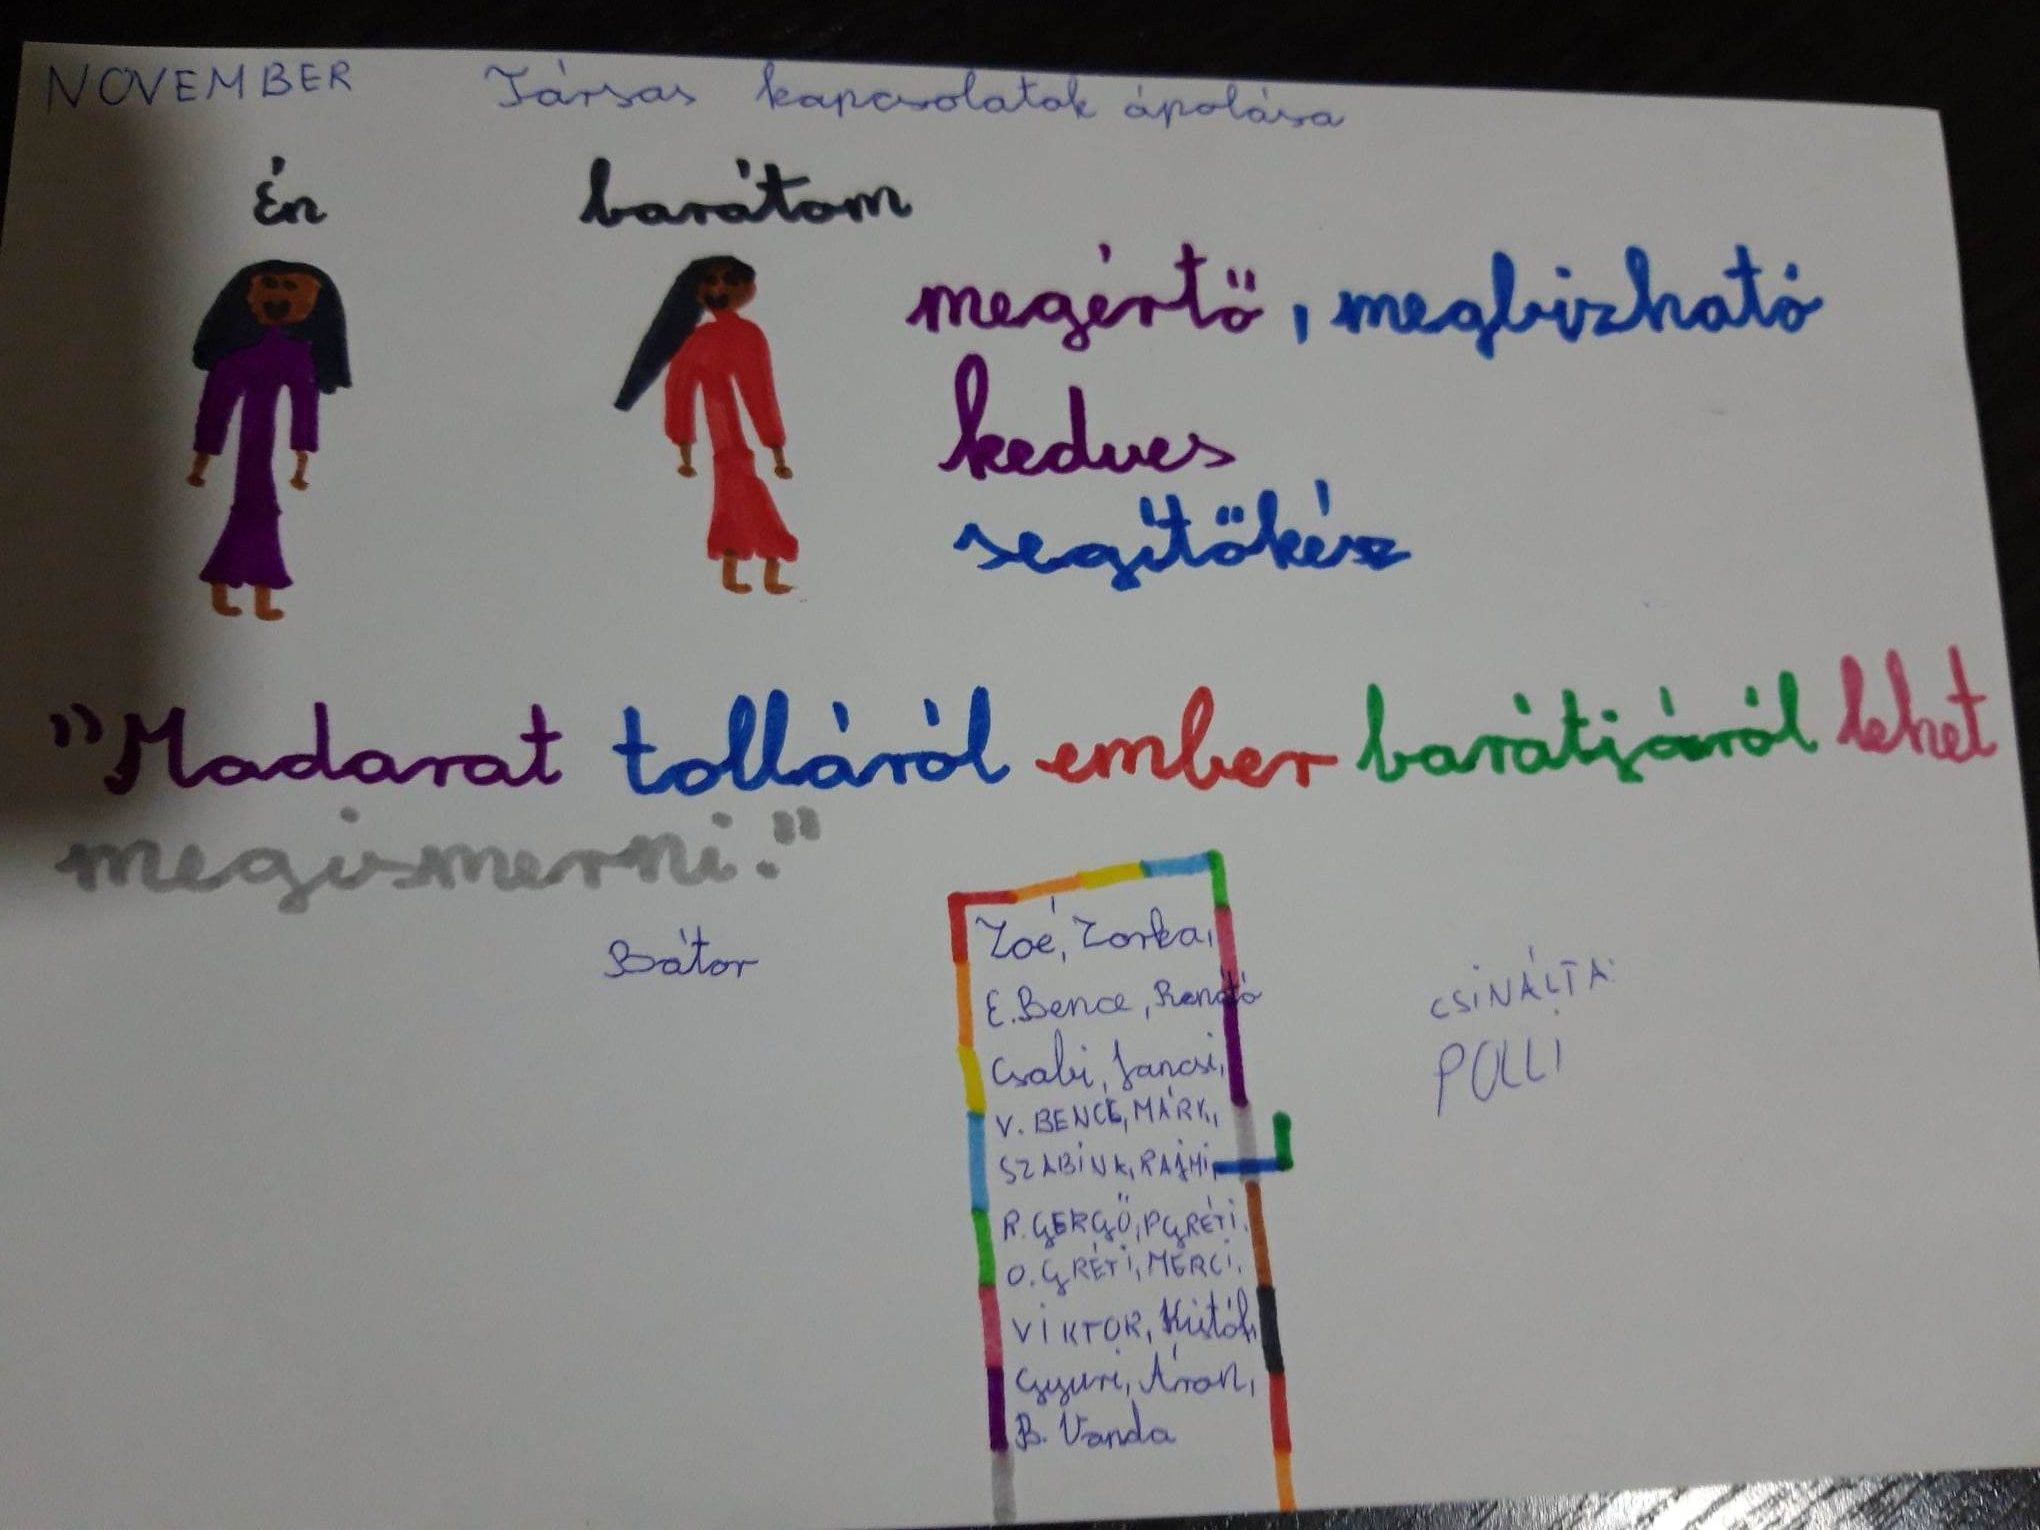 NOVEMBER Társas kapcsolatok ápolása
én barátom
megértő, megbízható
kedves
segítőkész
"Madarat tolláról ember barátjáról lehet
megismerni."
Bátor
Zoé, Zorka,
E. Bence, Renátó
Csabi, Jancsi,
V. BENCE, MÁRK,
SZABINA, RAJMI,
R. GERGŐ, P GRÉTI,
O. GRÉTI, MERCI,
VIKTOR,
Gyuri, Áron,
B. Vanda
CSINÁLTA:
POLLI